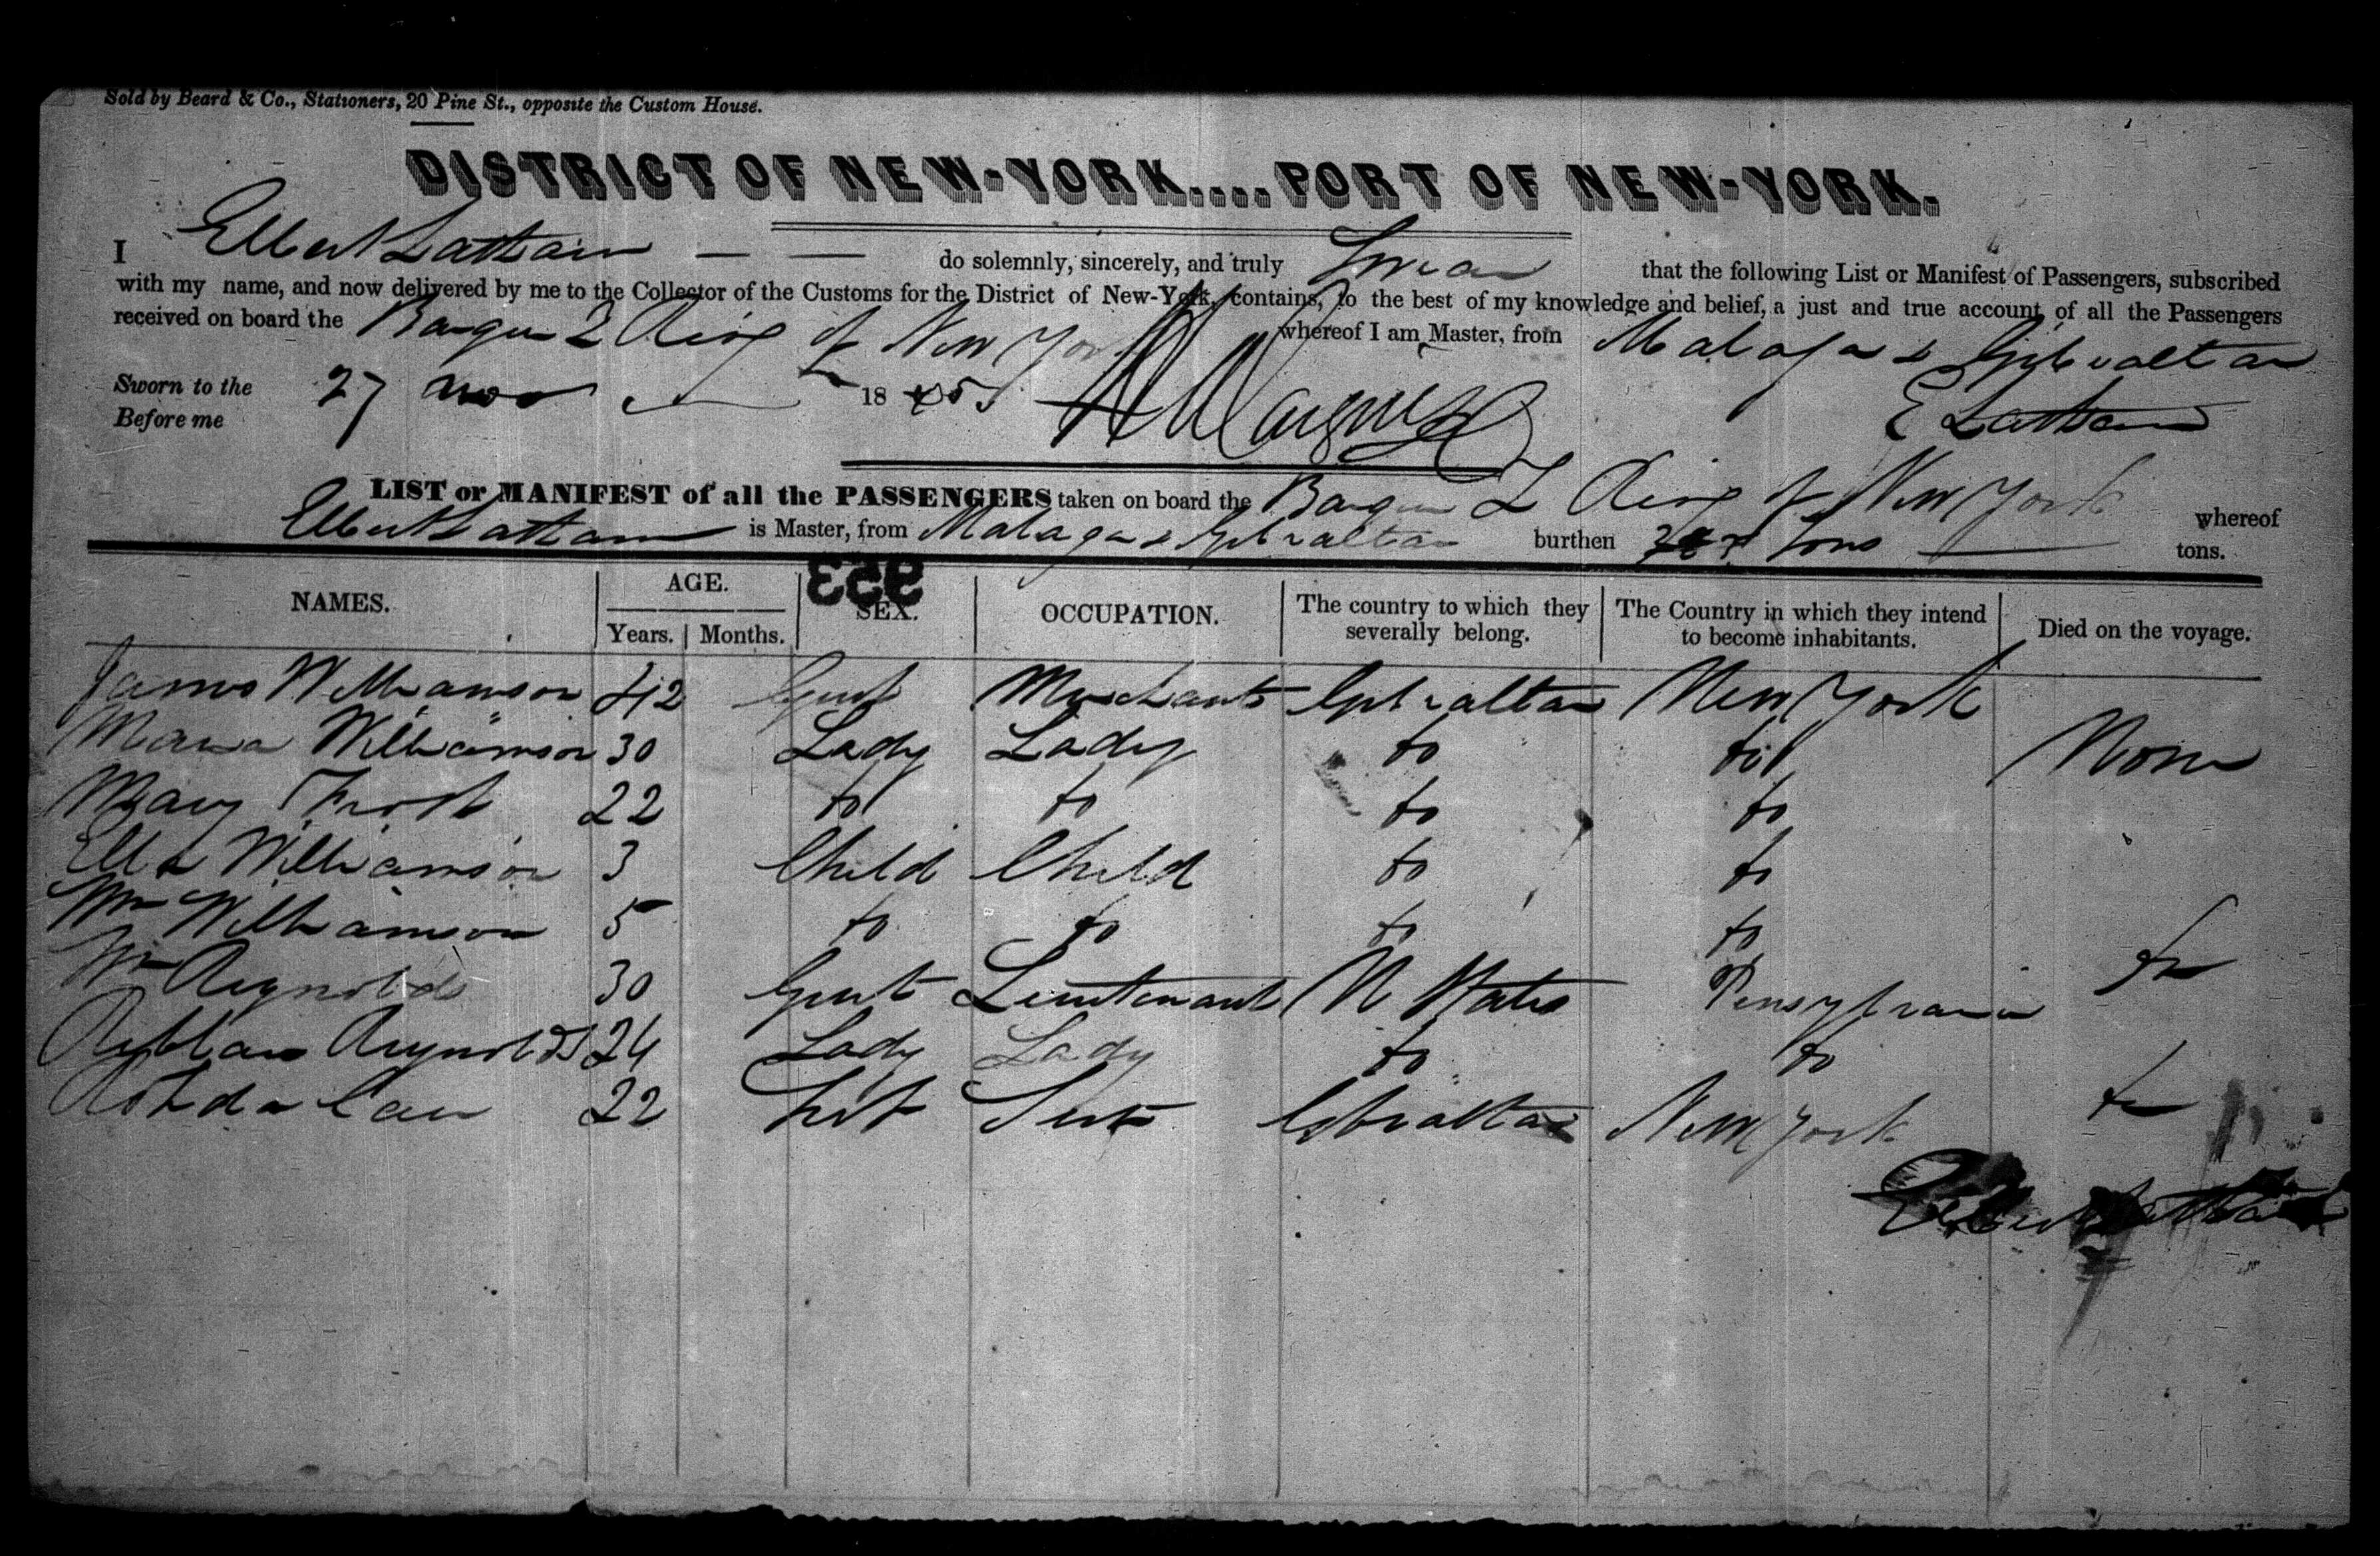 Sold by Beard & Co., Stationers, 20 Pine St., opposite the Custom House.
DISTRICT OF NEW-YORK....PORT OF NEW-YORK.
I Elbert Latham — — do solemnly, sincerely, and truly Swear that the following List or Manifest of Passengers, subscribed
with my name, and now delivered by me to the Collector of the Customs for the District of New-York, contains, to the best of my knowledge and belief, a just and true account of all the Passengers
received on board the Barque of New York whereof I am Master, from Malaga & Gibraltar
Sworn to the 27 18
Before me
E Latham
LIST or MANIFEST of all the PASSENGERS taken on board the Barque of New York whereof
Elbert Latham is Master, from Malaga & Gibraltar burthen tons tons.
353
NAMES. AGE. Years. Months. SEX. OCCUPATION. The country to which they severally belong. The Country in which they intend to become inhabitants. Died on the voyage.
James Williamson 42 Gent Merchant Gibraltar New York
Maria Williamson 30 Lady Lady do do None
Mary Frost 22 do do do do
Ella Williamson 3 Child Child do do
Wm Williamson 5 do do do do
Wm Reynolds 30 Gent Lieutenant U States Pensylvania do
Reynolds 24 Lady Lady do do
22 Gibraltar New York do
Elbert Latham